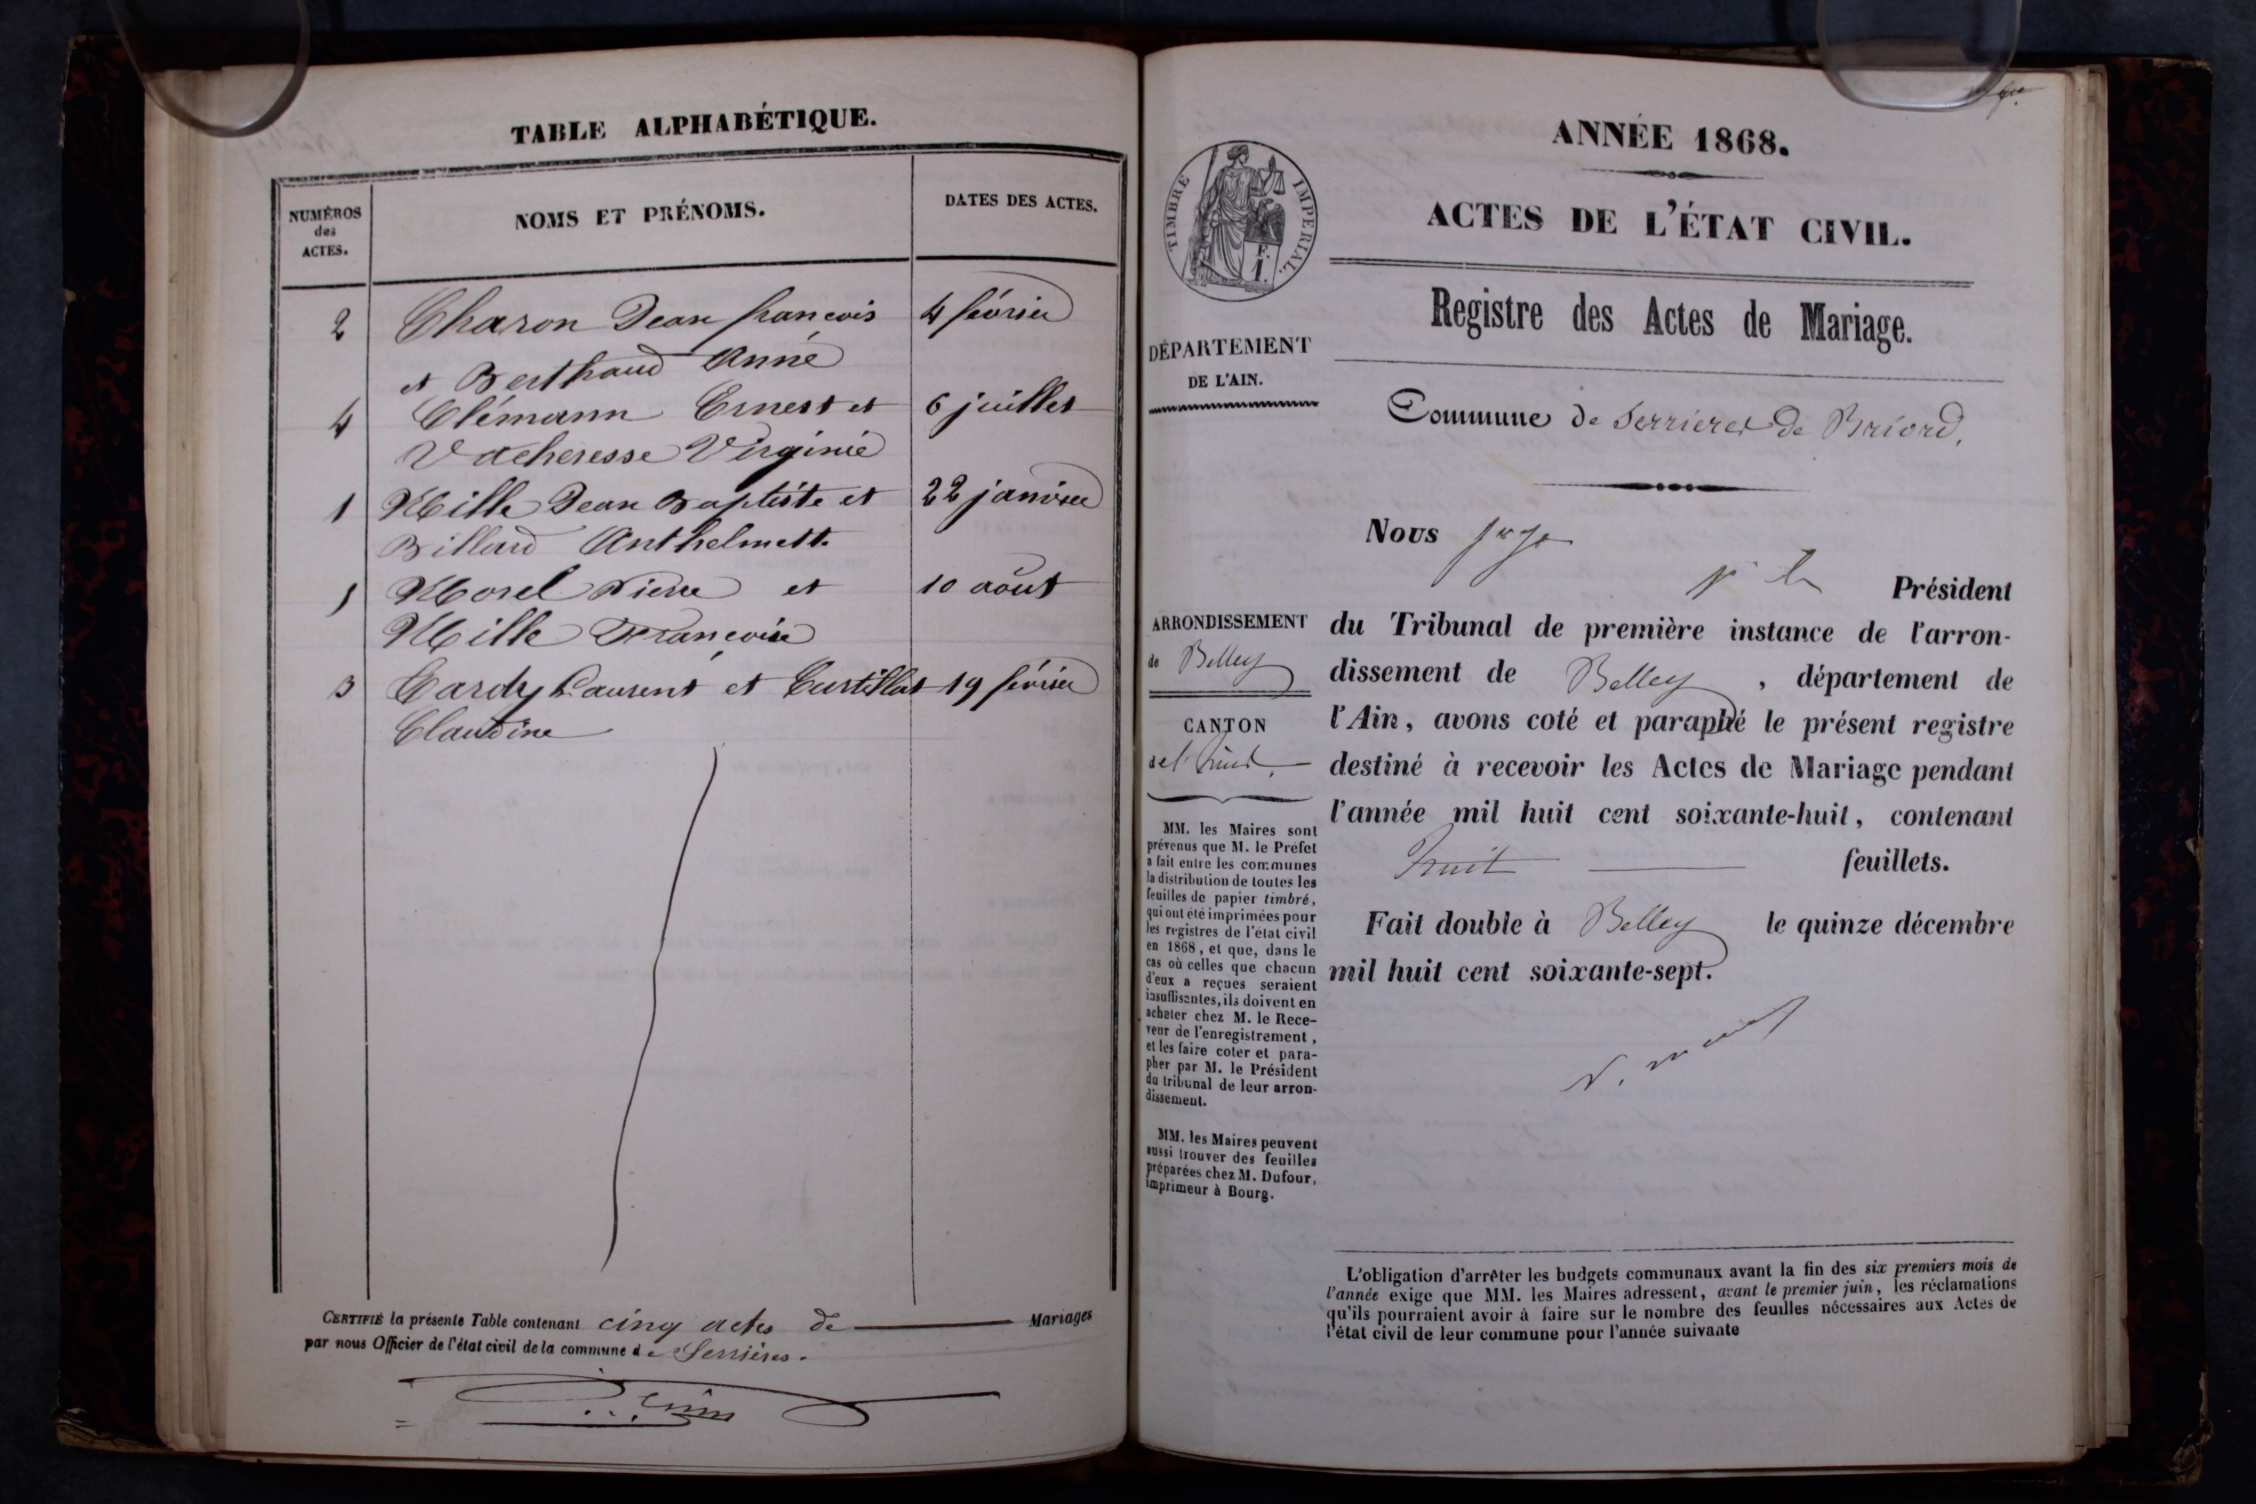 TABLE ALPHABÉTIQUE.
NUMÉROS
des
ACTES.
NOMS ET PRÉNOMS.
DATES DES ACTES.
2 Charon Jean françois 4 février
et Berthaud Anne
4 Clémann Ernest et 6 juillet
Vacheresse Virginie
1 Mille Jean Baptiste et 22 janvier
Billard Anthelmette
5 Morel Pierre et 10 août
Mille Françoise
3 Tardy Laurent et Curtillat 19 février
Claudine
CERTIFIÉ la présente Table contenant cinq actes de Mariages
par nous Officier de l'état civil de la commune de Serrières.
ANNÉE 1868.
ACTES DE L'ÉTAT CIVIL.
TIMBRE IMPÉRIAL.
Registre des Actes de Mariage.
DÉPARTEMENT
DE L'AIN.
Commune de Serrieres de Briord,
Nous
Président
ARRONDISSEMENT
de Belley
CANTON
de
MM. les Maires sont
prévenus que M. le Préfet
a fait entre les communes
la distribution de toutes les
feuilles de papier timbré,
qui ont été imprimées pour
les registres de l'état civil
en 1868, et que, dans le
cas où celles que chacun
d'eux a reçues seraient
insuffisantes, ils doivent en
acheter chez M. le Rece-
veur de l'enregistrement,
et les faire coter et para-
pher par M. le Président
du tribunal de leur arron-
dissement.
MM. les Maires peuvent
aussi trouver des feuilles
préparées chez M. Dufour,
imprimeur à Bourg.
du Tribunal de première instance de l'arron-
dissement de Belley, département de
l'Ain, avons coté et paraphé le présent registre
destiné à recevoir les Actes de Mariage pendant
l'année mil huit cent soixante-huit, contenant
huit feuillets.
Fait double à Belley le quinze décembre
mil huit cent soixante-sept.
L'obligation d'arrêter les budgets communaux avant la fin des six premiers mois de
l'année exige que MM. les Maires adressent, avant le premier juin, les réclamations
qu'ils pourraient avoir à faire sur le nombre des feuilles nécessaires aux Actes de
l'état civil de leur commune pour l'année suivante